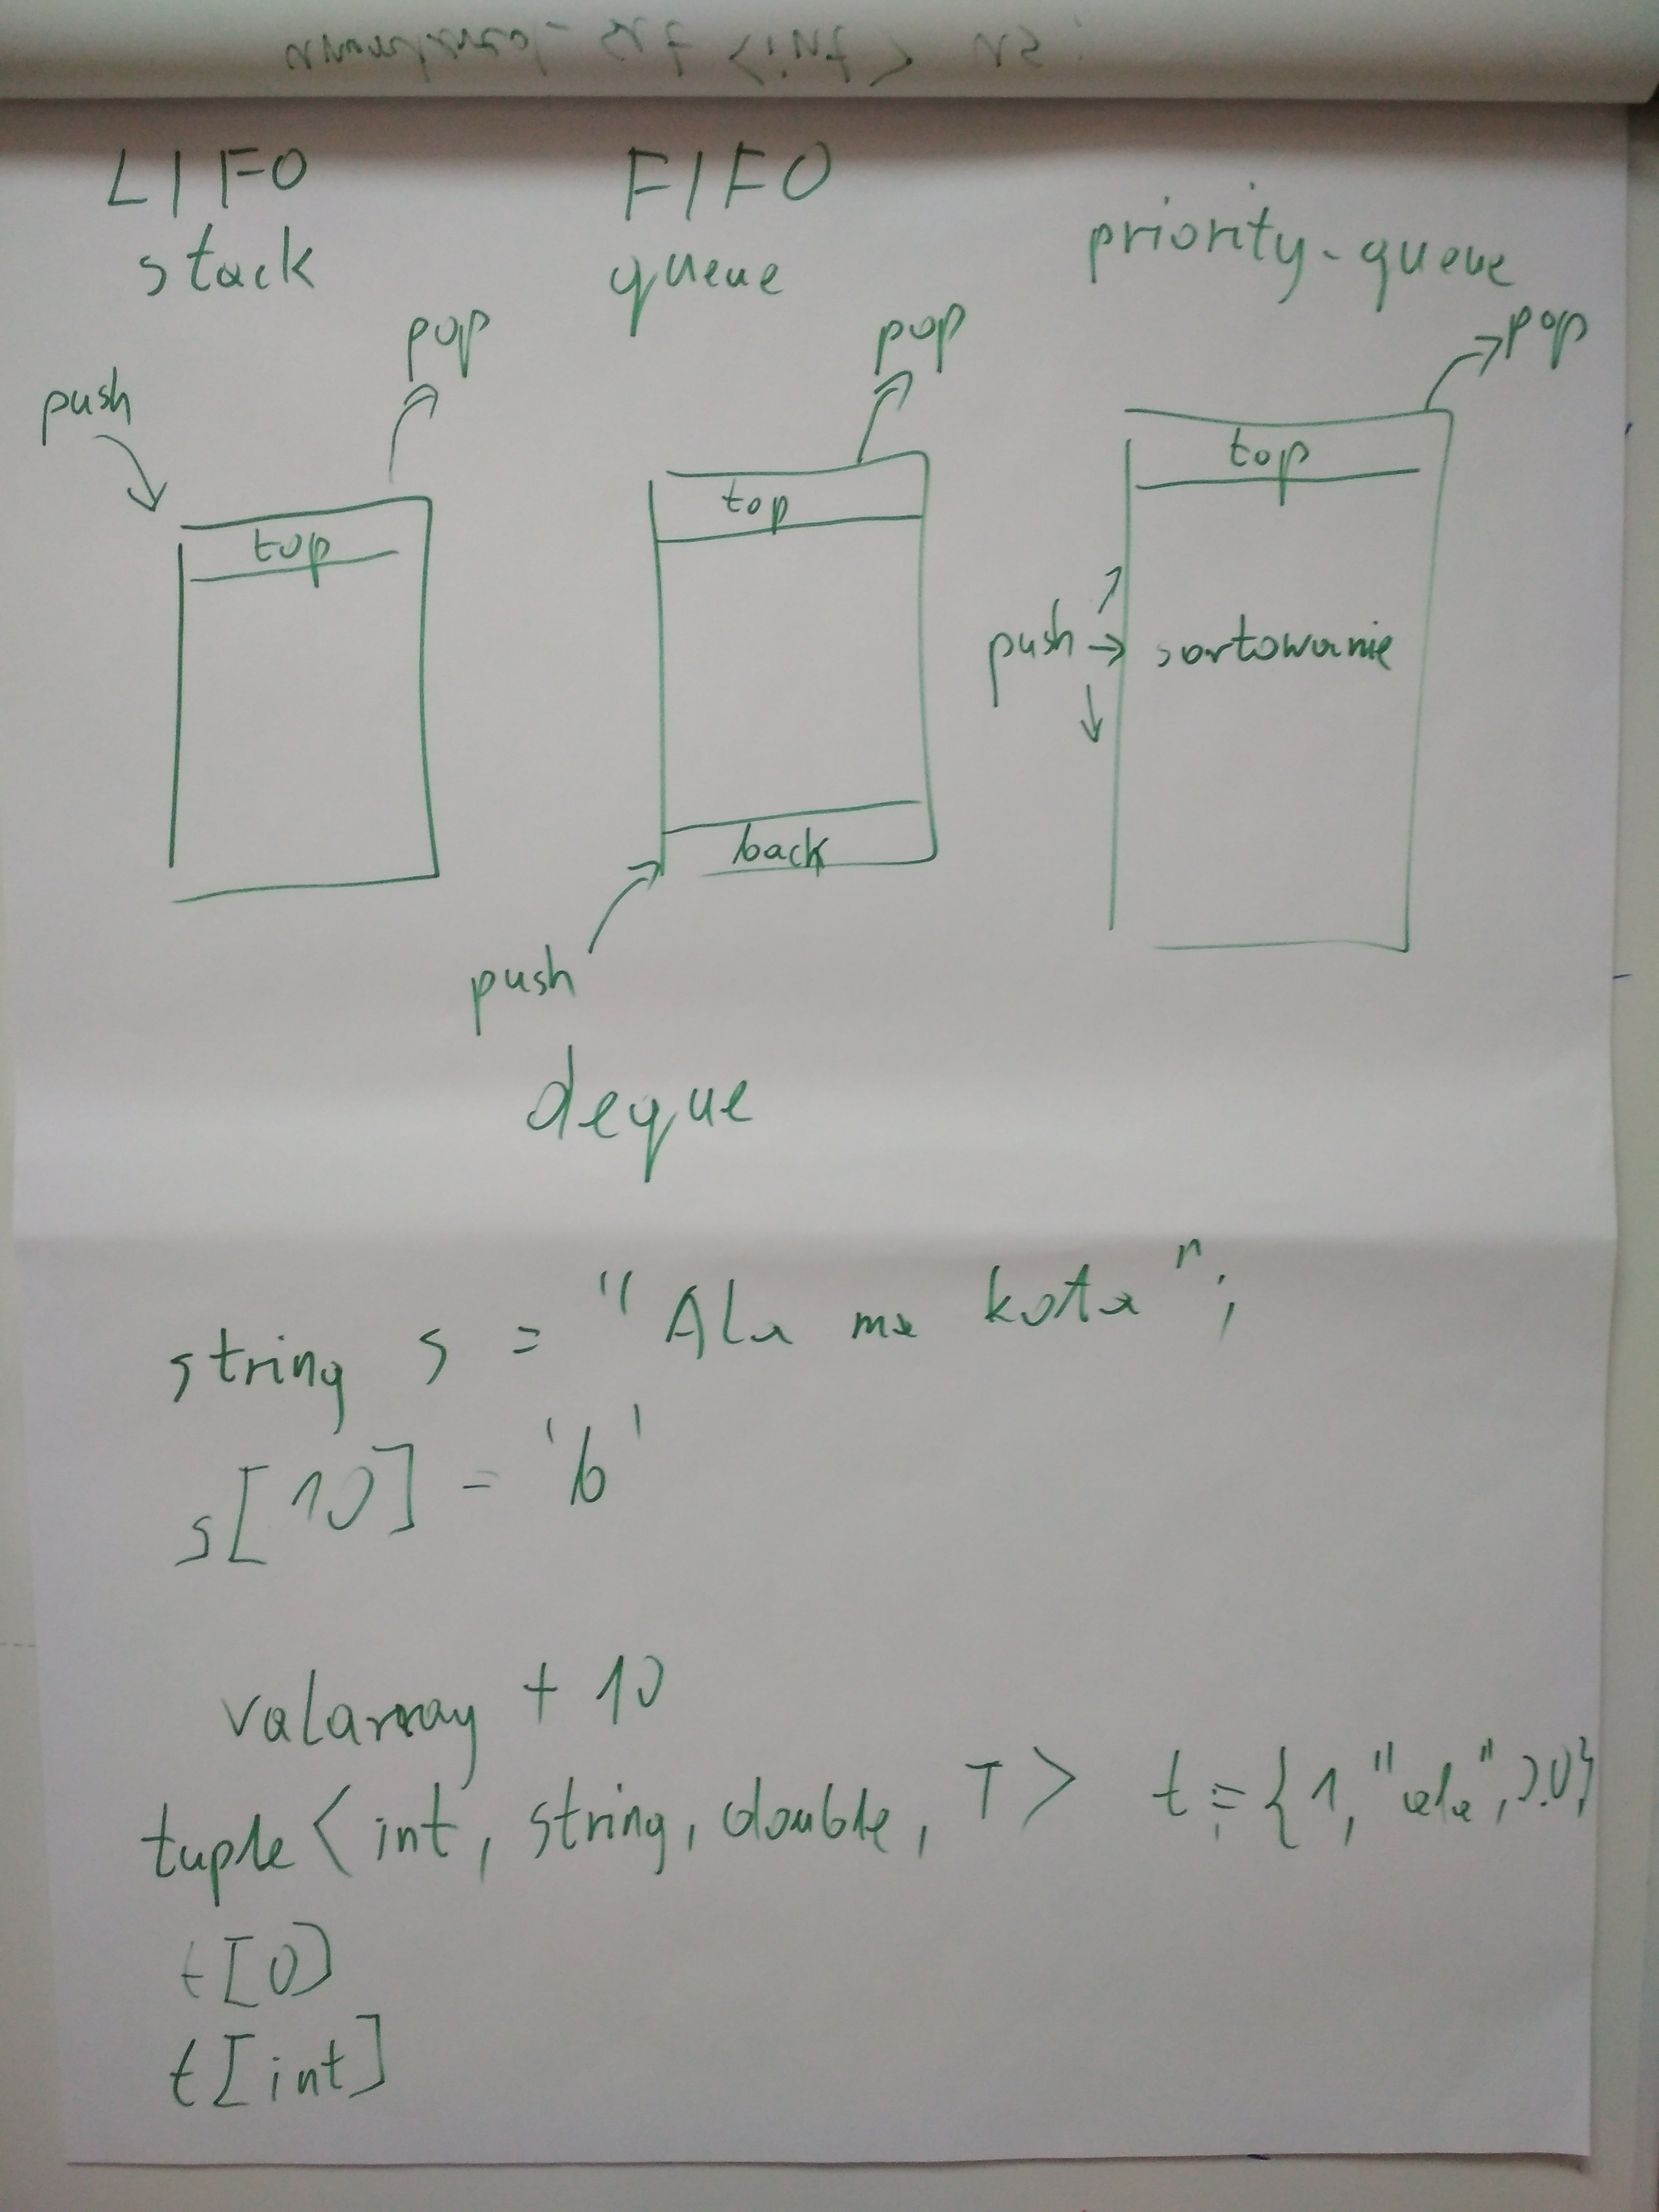 LIFO
stack
push
pop
top
FIFO
queue
pop
top
back
push
priority-queue
pop
top
push
sortowanie
deque
string s = "Ala ma kota";
s[10] = 'b'
valarray + 10
tuple < int, string, double, T > t = {1, "ala", 2.0};
t[0]
t[int]